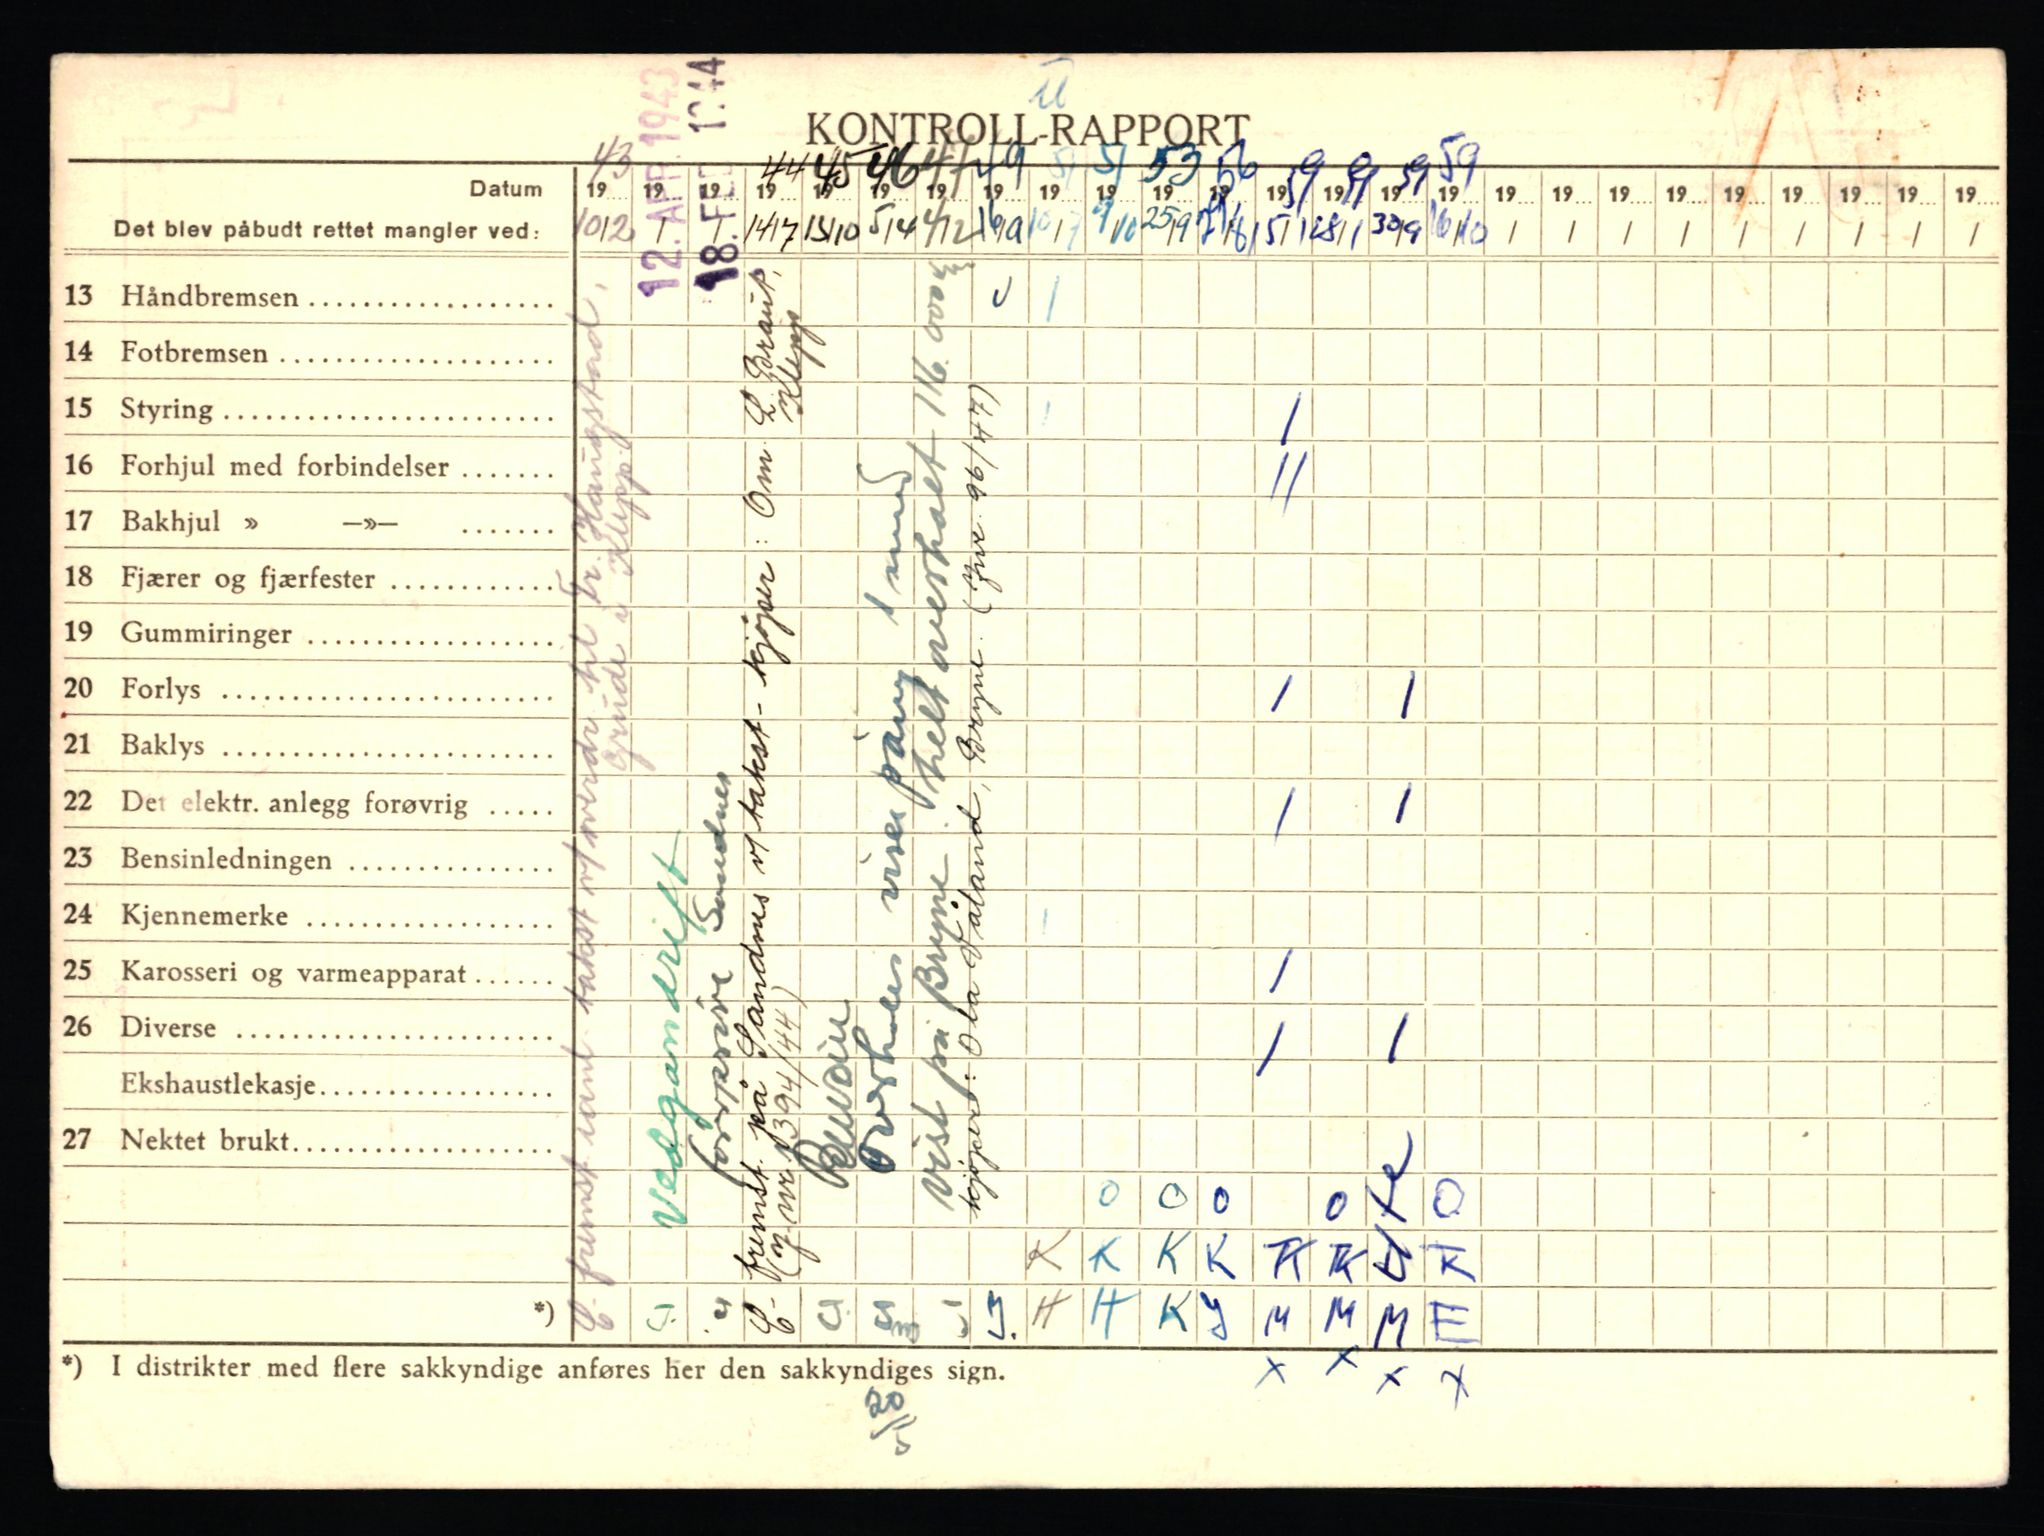 KONTROLL-RAPPORT
Datum 19 43 19 19 19 44 19 45 19 46 19 47 19 49 19 51 19 51 19 53 19 56 19 59 19 59 19 59 19 59 19 19 19 19 19 19 19 19 19
12. APR. 1943
18. FEB 1944
Det blev påbudt rettet mangler ved: 10/2 / / 14/7 15/10 5/4 4/12 /9 10/7 /10 25/9 /8 5/1 28/1 30/9 16/10 / / / / / / / / /
13 Håndbremsen
14 Fotbremsen
15 Styring
16 Forhjul med forbindelser
17 Bakhjul » —»—
18 Fjærer og fjærfester
19 Gummiringer
20 Forlys
21 Baklys
22 Det elektr. anlegg forøvrig
23 Bensinledningen
24 Kjennemerke
25 Karosseri og varmeapparat
26 Diverse
Ekshaustlekasje
27 Nektet brukt
fremst. takst v/ til Fr. Haugstad,
Grude i Klepp.
Vedgandrift
Sandnes
fremst. på Sandnes v/ takst - kjøper: Om L. Braut,
Klepp
394/44)
Overhales vises påny
vist på Bryne helt overhalt 116.000
kjøpers: Ola Faland, Bryne. 96/47)
O O O O O
K K K K K K K
H H K Y M M M E
x x x x
*)
*) I distrikter med flere sakkyndige anføres her den sakkyndiges sign.
20/5